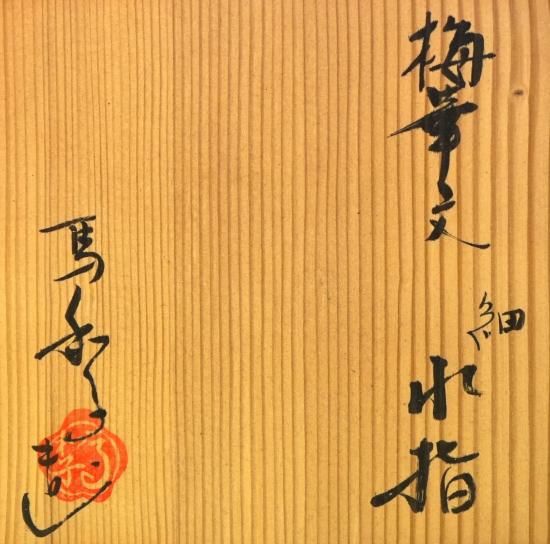 梅華文 細水指
馬水子造